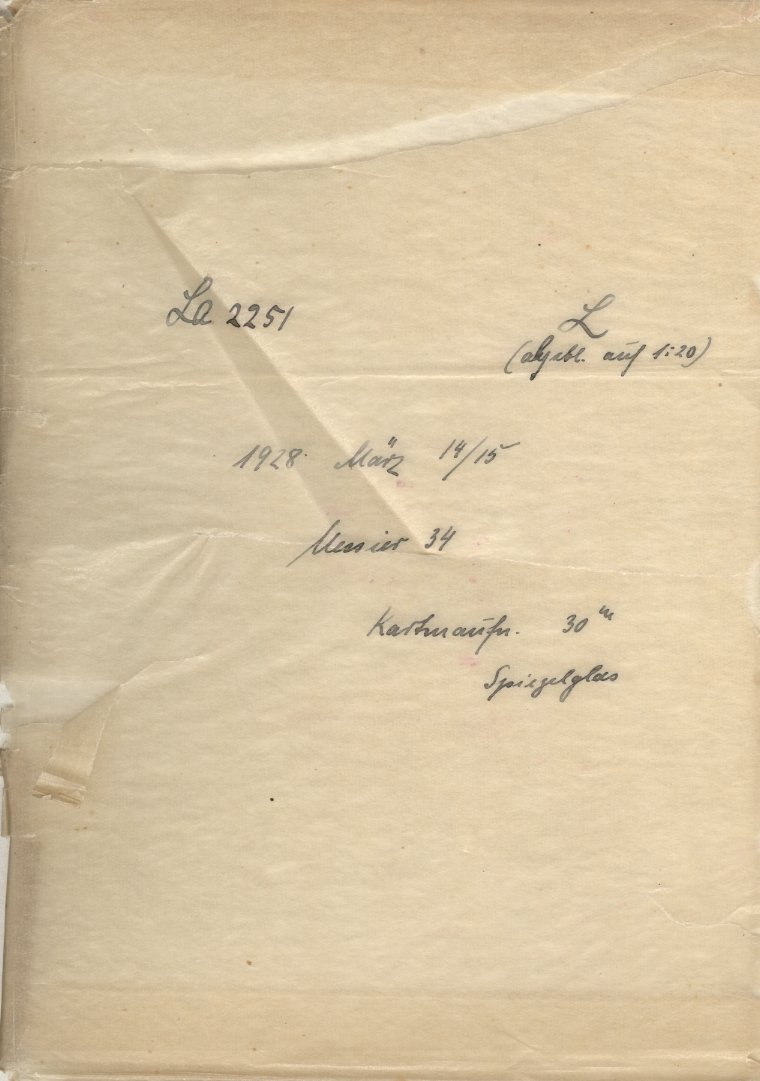 La 2251
L
(abgebl. auf 1:20)
1928 März 14/15
Messier 34
Kartenaufn. 30ᵐ
Spiegelglas